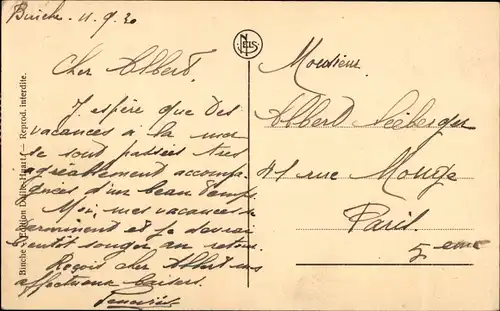 Binche - 11.9.30
Cher Albert,
J'espère que tes
vacances à la mer
se sont passées très
agréablement accompa
gnées d'un beau temps.
Moi, mes vacances se
terminent et je devrai
bientôt songer au retour.
Reçois cher Albert mes
affectueux baisers.
Binche - Edition Duille-Huart - Reprod. interdite.
NELS
Monsieur
Albert Seeberger
41 rue Monge
Paris
5eme